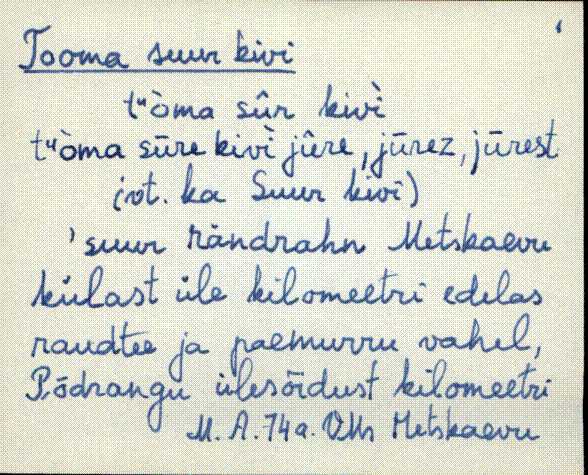 Tooma suur kivi
tᵘòma sûr kivì
tᵘòma sūre kivì jûre, jūrez, jūrest
(vt. ka Suur kivi)
'suur rändrahn Metskaevu
külast üle kilomeetri edelas
raudtee ja paemurru vahel,
Põdrangu ülesõidust kilomeetri
M. A. 74 a. VMs Metskaevu